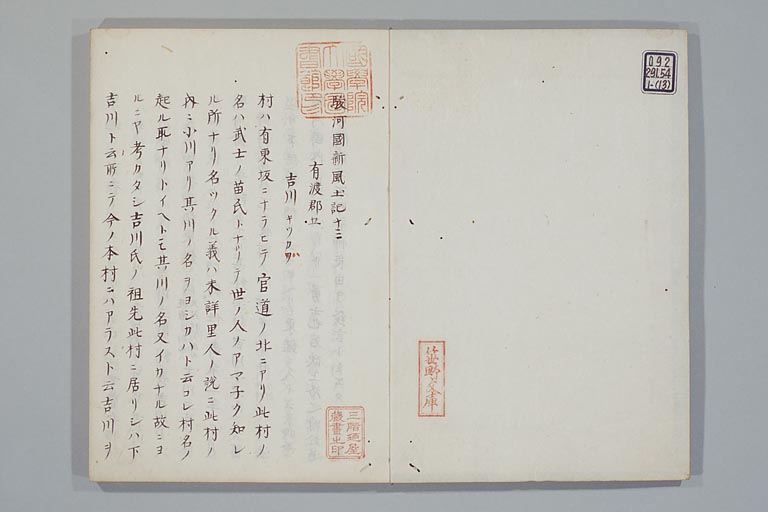 駿河國新風土記十三
有渡郡五
吉川 キツカワ
村ハ有東坂ニナラヒテ官道ノ北ニアリ此村ノ
名ハ武士ノ苗氏トナリテ世ノ人ノアマ子ク知レ
ル所ナリ名ツクル義ハ未詳里人ノ説ニ此村ノ
内ニ小川アリ其川ノ名ヲヨシカハト云コレ村名ノ
起ル所ナリトイヘトモ其川ノ名又イカナル故ニヨ
ルニヤ考カタシ吉川氏ノ祖先此村ニ居リシハ下
吉川ト云所ニテ今ノ本村ニハアラスト云吉川ヲ
國學院
大學圖
書館印
三階穂屋
蔵書之印
笹野文庫
092
291.54
1-(13)